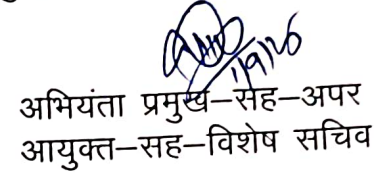 1/9/26
अभियंता प्रमुख–सह–अपर
आयुक्त–सह–विशेष सचिव